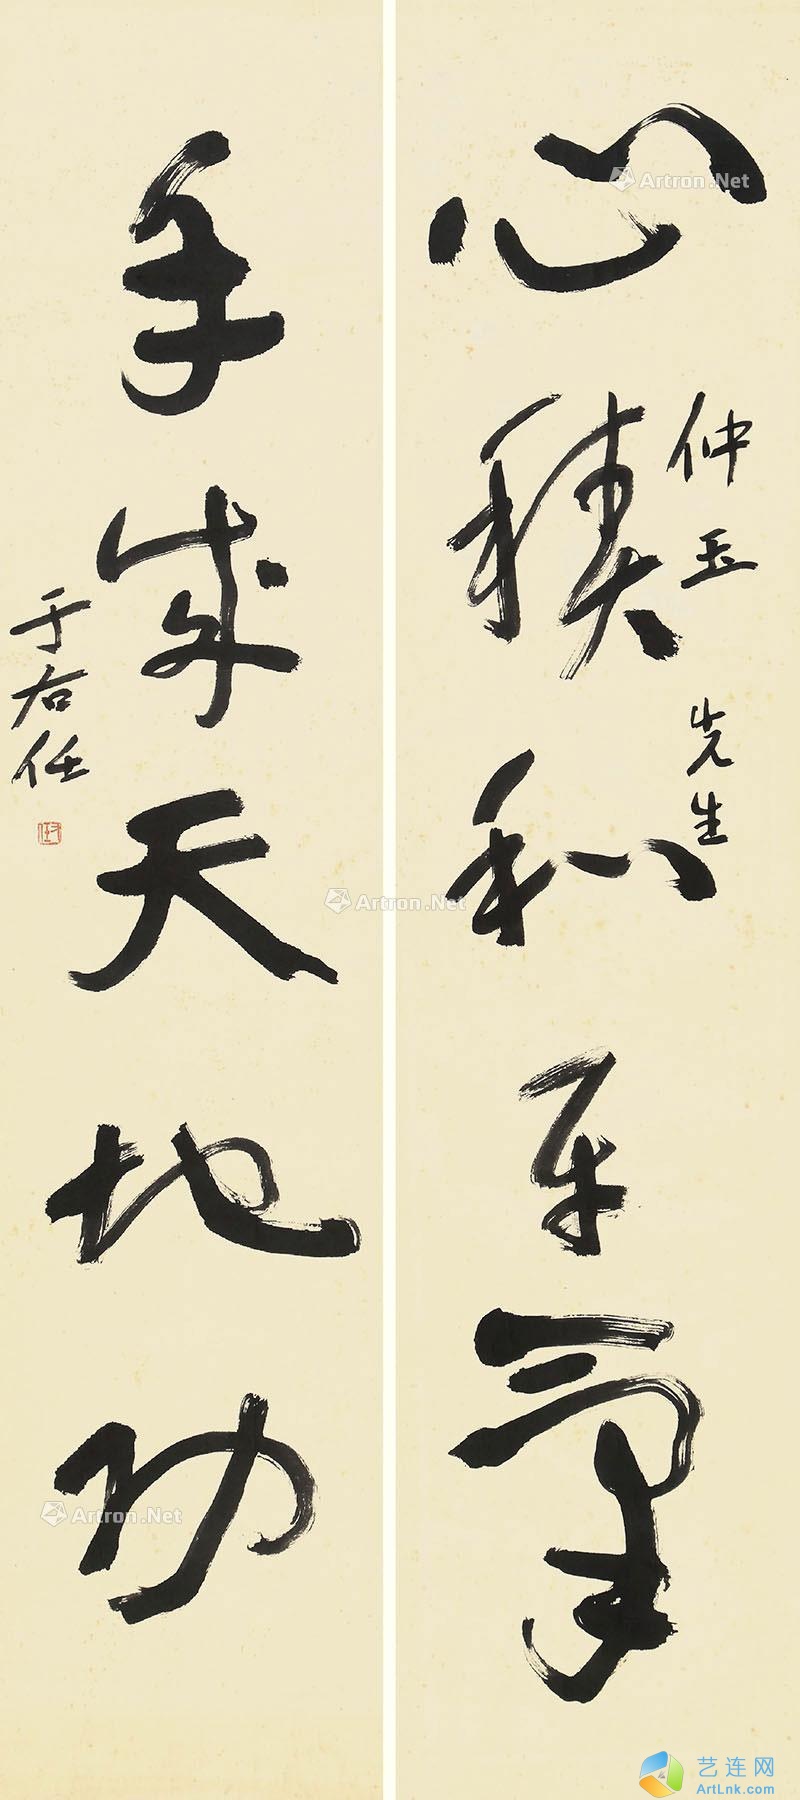 心積和平氣
仲玉先生
手成天地功
于右任
右任
Artron.Net
Artron.Net
Artron.Net
艺连网
ArtLnk.com